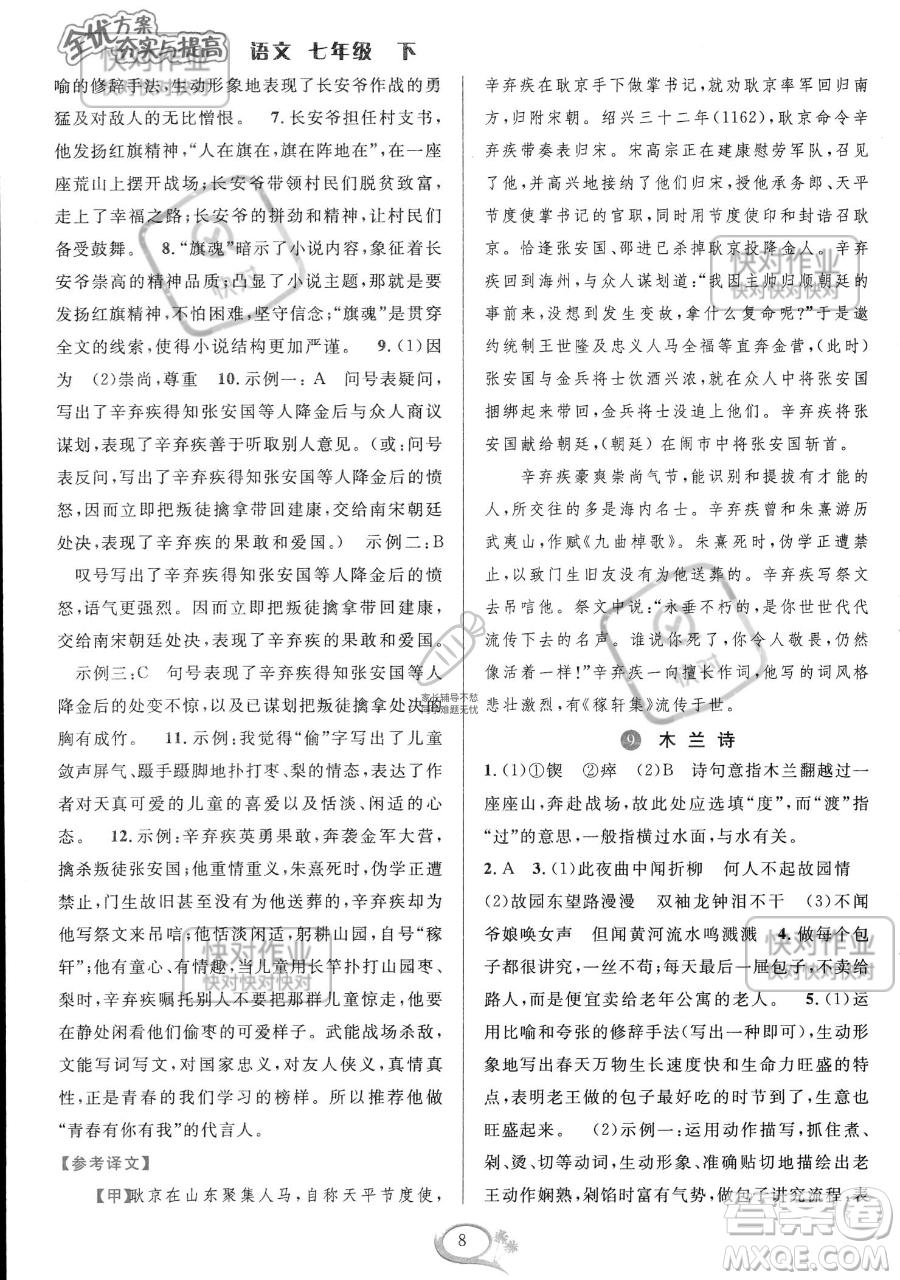 全优方案
夯实与提高
语文 七年级 下
喻的修辞手法,生动形象地表现了长安爷作战的勇
猛及对敌人的无比憎恨。 7.长安爷担任村支书,
他发扬红旗精神,“人在旗在,旗在阵地在”,在一座
座荒山上摆开战场;长安爷带领村民们脱贫致富,
走上了幸福之路;长安爷的拼劲和精神,让村民们
备受鼓舞。 8.“旗魂”暗示了小说内容,象征着长
安爷崇高的精神品质;凸显了小说主题,那就是要
发扬红旗精神,不怕困难,坚守信念;“旗魂”是贯穿
全文的线索,使得小说结构更加严谨。 9.(1)因
为 (2)崇尚,尊重 10.示例一:A 问号表疑问,
写出了辛弃疾得知张安国等人降金后与众人商议
谋划,表现了辛弃疾善于听取别人意见。(或:问号
表反问,写出了辛弃疾得知张安国等人降金后的愤
怒,因而立即把叛徒擒拿带回建康,交给南宋朝廷
处决,表现了辛弃疾的果敢和爱国。) 示例二:B
叹号写出了辛弃疾得知张安国等人降金后的愤
怒,语气更强烈。因而立即把叛徒擒拿带回建康,
交给南宋朝廷处决,表现了辛弃疾的果敢和爱国。
示例三:C 句号表现了辛弃疾得知张安国等人
降金后的处变不惊,以及已谋划把叛徒擒拿处决的
胸有成竹。 11.示例:我觉得“偷”字写出了儿童
敛声屏气、蹑手蹑脚地扑打山枣时的情景,表现了
作者对天真可爱的儿童的喜爱以及恬淡、闲适的心
态。 12.示例:辛弃疾英勇果敢,奔袭金军大营,
擒杀叛徒张安国;他重情重义,朱熹死时,由于伪学
禁止,门生故旧甚至没有送葬的,辛弃疾却无畏地
为他写祭文来吊唁;他恬淡闲适,躬耕山园,自号“稼
轩”;他有童心、有情趣,当儿童用长竿扑打山园枣、
梨时,辛弃疾嘱托别人不要把那群儿童惊走,他要
在静处闲看他们偷枣的可爱样子。武能战场杀敌,
文能写词写文,对国家忠义,对友人侠义,真性真
情,正是青春的我们学习的榜样。所以我推荐他做
“青春有你有我”的代言人。
【参考译文】
【甲】耿京在山东聚集人马,自称天平节度使,
辛弃疾在耿京手下做掌书记,就劝耿京率军回归南
方,归附宋朝。绍兴三十二年(1162),耿京命令辛
弃疾带奏表归宋。宋高宗正在建康慰劳军队,召见
了他,并高兴地接纳了他,授予他承务郎、天平
节度使掌书记的官职,同时用节度使印和封诰召耿
京。恰逢张安国、邵进已杀掉耿京投降金人。辛弃
疾回到海州,与众人谋划道:“我因主帅归顺朝廷的
事前来,没想到发生变故,拿什么复命呢?”于是邀
约统制王世隆及忠义人马全福等直奔金营,(此时)
张安国正在与金兵将士饮酒兴浓,就在众人中将张安国
捆绑起来带回,金兵将士没能追上他们。辛弃疾将张
安国献给朝廷,(朝廷)在闹市中将张安国斩首。
辛弃疾豪爽崇尚气节,能识别和提拔有才能的
人,所交往的人多是海内名士。辛弃疾曾和朱熹游历
武夷山,作赋《九曲棹歌》。朱熹死时,伪学禁令正严,
以致门生旧友没有给他送葬的。辛弃疾写祭文
去吊唁他。祭文中说:“永垂不朽的,是你世世代代
流传下去的名声。谁说你死了,你令人敬畏,仍然
像活着一样!”辛弃疾一向擅长作词,他写的词风格
悲壮激烈,有《稼轩集》流传于世。
9 木兰诗
1.(1)①锲 ②瘁 (2)B 诗句意指木兰翻越过一
座座山,奔赴战场,故此处应选填“度”,而“渡”指
“过”的意思,一般指横过水面,与水有关。
2.A 3.(1)此夜曲中闻折柳 何人不起故园情
(2)故园东望路漫漫 双袖龙钟泪不干 (3)不闻
爷娘唤女声 但闻黄河流水鸣溅溅 4.做每个包
子都很讲究,一丝不苟;每天最后一屉包子,送给
路人,而是便宜卖给老年公寓的老人。 5.(1)
运用比喻和夸张的修辞手法(写出一种即可),生动形
象地写出春天万物生长速度快和生命力旺盛的特
点,表明老王做的包子吃的时节到了,生意
旺盛起来。 (2)示例一:运用动作描写,抓住煮、
剁、烫、切等动词,生动形象、具体细致地写出了老
王动作娴熟,剁馅富有气势,做包子讲究流程,表
家长辅导不愁
同学难题无忧
快对作业
快对快对快对
快对作业
快对快对快对
快对
快对
快对作业
快对快对快对
快对作业
快对快对快对
8
答案圈
MXQE.COM